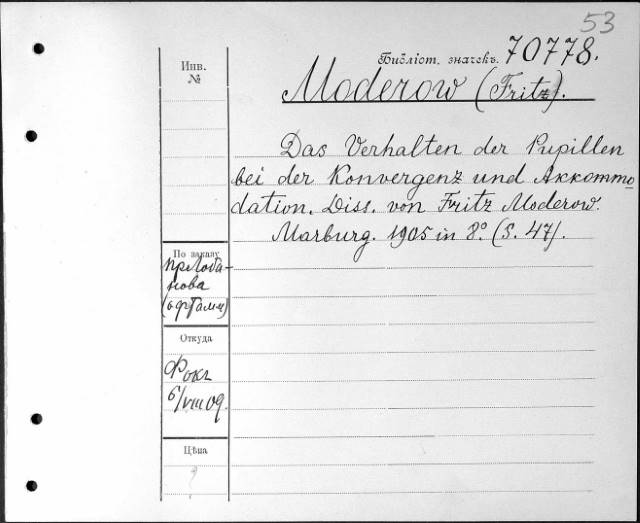 53
Библіот. значекъ. 70778.
Инв.
№
Moderow (Fritz).
Das Verhalten der Pupillen
bei der Konvergenz und Akkommo
dation. Diss. von Fritz Moderow.
Marburg. 1905 in 8° (S. 47).
По заказу
пр Лоба-
нова
(офталм)
Откуда
Фокъ
6/VIII 09.
Цѣна
?